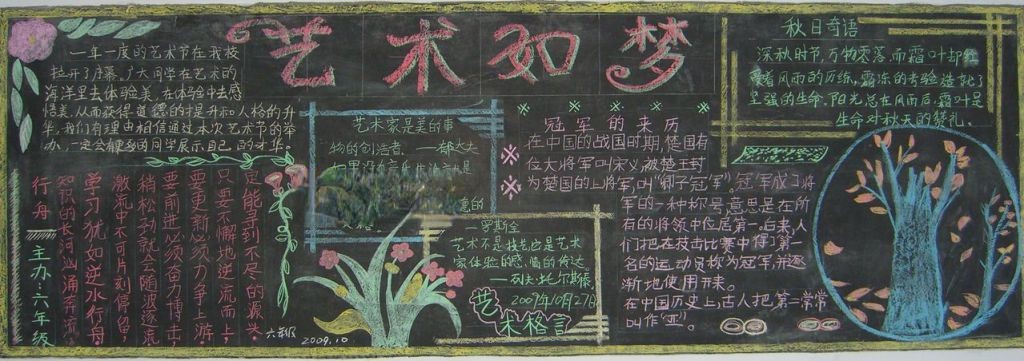 艺术如梦
一年一度的艺术节在我校
拉开了序幕。广大同学在艺术的
海洋里去体验美,在体验中去感
悟美,从而获得道德的提升和人格的升
华,我们有理由相信通过本次艺术节的举
办,一定会
同学展示自己的才华。
艺术家是美的事
物的创造者。
一罗斯金
艺术不是技艺,它是艺术
家体验的感情的传达
——列夫·托尔斯泰
2009年10月27日
艺术格言
冠军的来历
在中国的战国时期,楚国有
位大将军叫宋义被楚王封
为楚国的上将军,叫“卿子冠军”。冠军成了将
军的一种称号,意思是在所
有的将领中位居第一。后来,人
们把在技击比赛中得了第一
名的运动员称为冠军,并逐
渐地使用开来。
在中国历史上,古人把第二常常
叫作“亚”。
秋日奇语
深秋时节,万物零落,而霜叶却
着风雨的历练,霜冻的考验造就了
坚强的生命。阳光总在风雨后,霜叶是
生命对秋天的赞礼。
是能寻到不尽的源头。
只要不懈地逆流而上,
要更新必须力争上游
要前进必须奋力博击;
稍一松劲就会随波逐流
激流中不可片刻停留,
学习犹如逆水行舟
知识的长河汹涌奔流
行舟
主办:六年级
六年级
2009.10